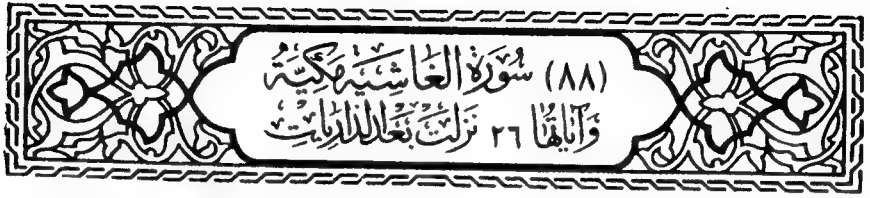 (٨٨) سُورَة الغَاشِيَة مَكِّيَّة
وَآيَاتُهَا ٢٦ نَزَلَتْ بَعْدَ الذَّارِيَاتِ